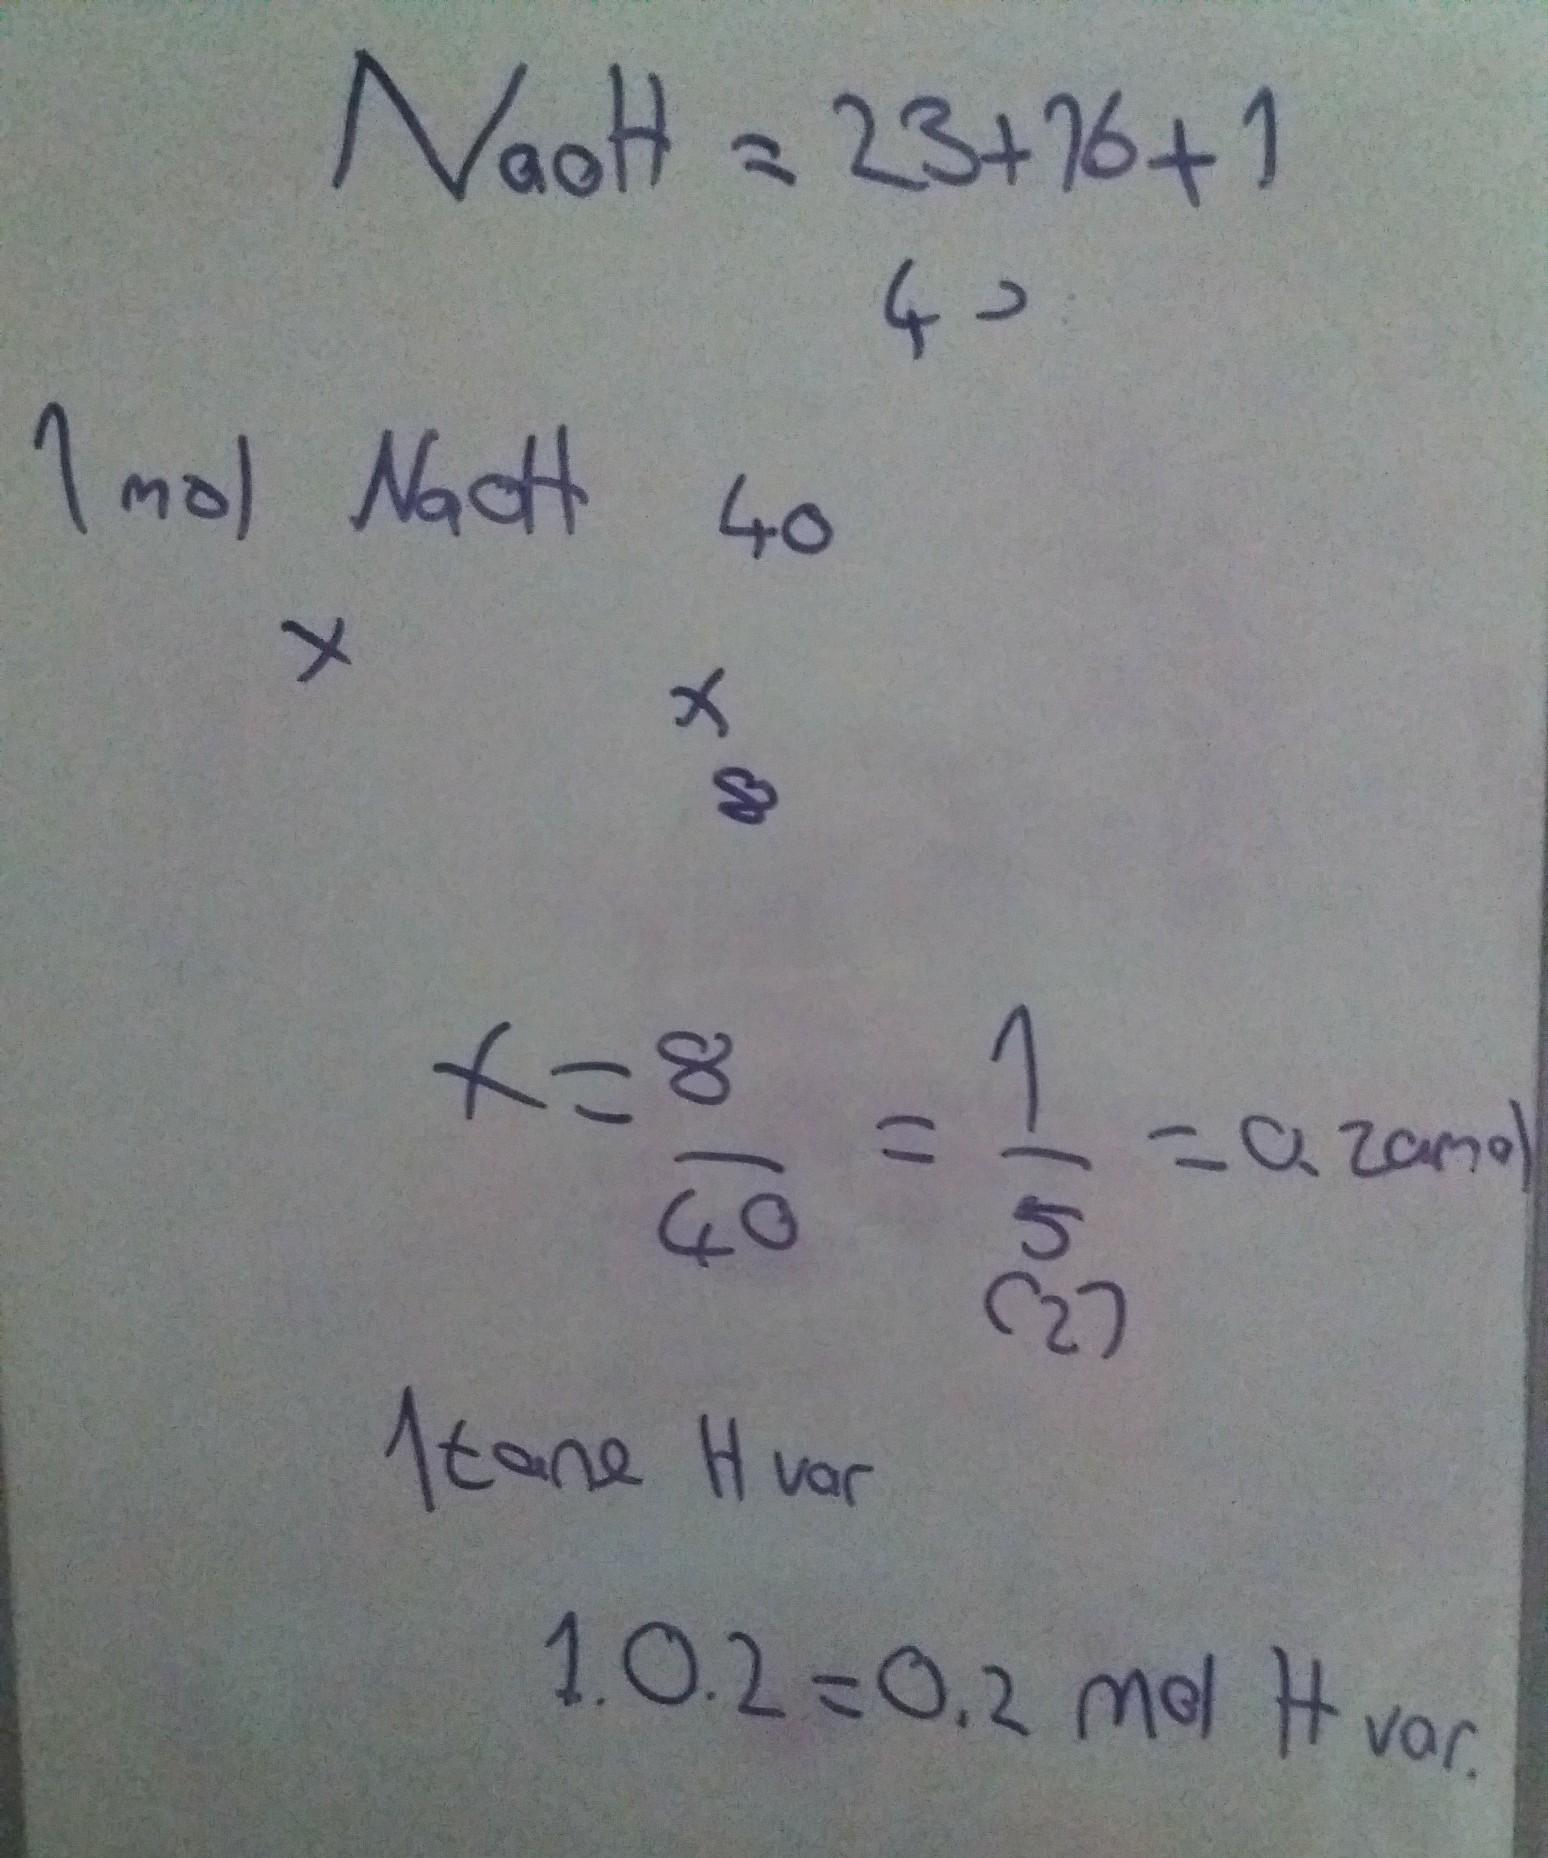 NaOH = 23+16+1
40
1 mol NaOH 40
x
x
8
x = 8/40 = 1/5 = 0.20mol
(2)
1 tane H var
1.0.2=0.2 mol H var.